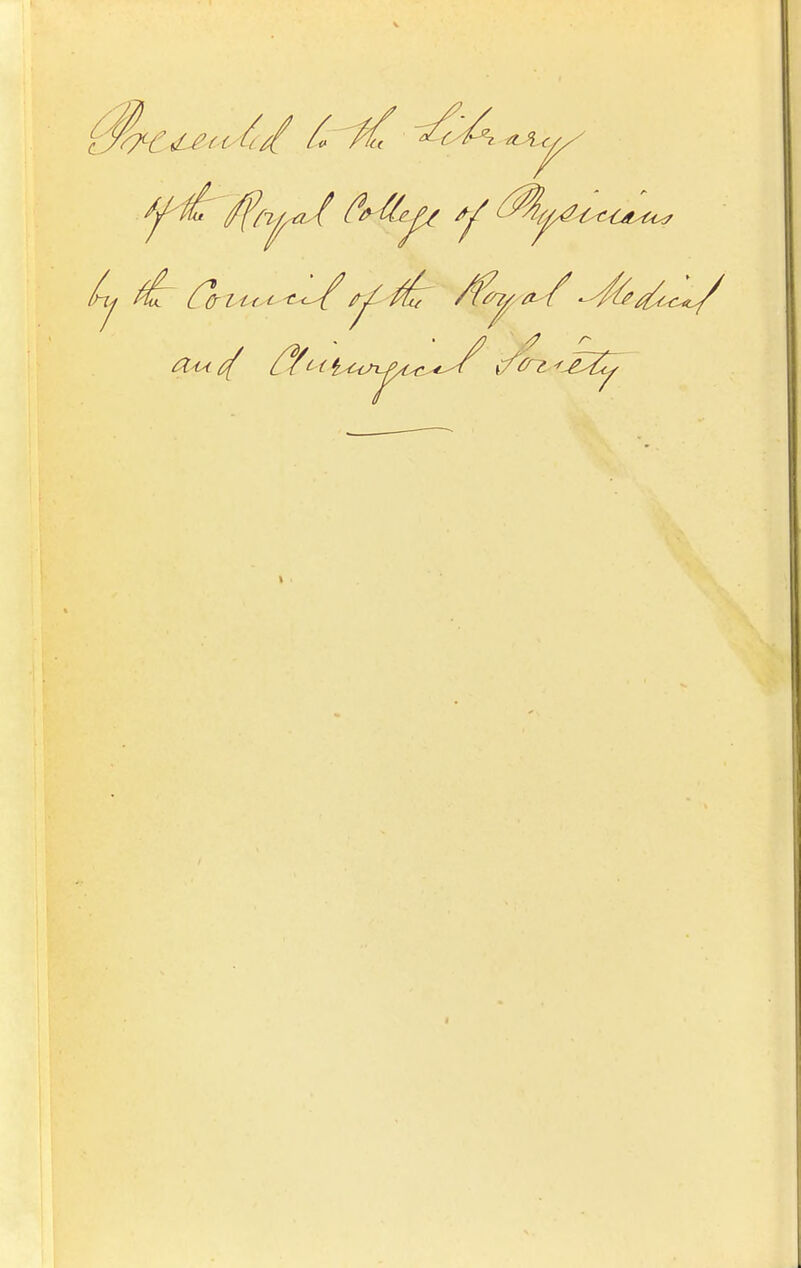 Presented to the Library
of the Royal College of Physicians
by the Council of the Royal Medical
and Chirurgical Society